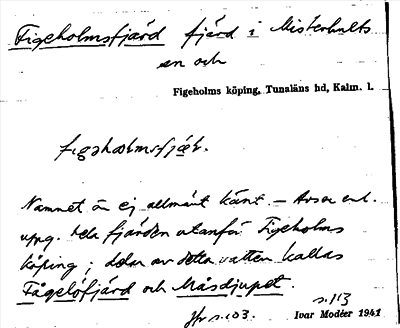 Figeholmsfjärd fjärd i Misterhults
sn och
Figeholms köping, Tunaläns hd, Kalm. l.
figəhɷlmsfjæ̣r.
Namnet är ej allmänt känt — Avser enl.
uppg. hela fjärden utanför Figeholms
köping; delar av detta vatten kallas
Fågelöfjärd och Måsdjupet.
s. 113
Jfr s. 103. Ivar Modéer 1941